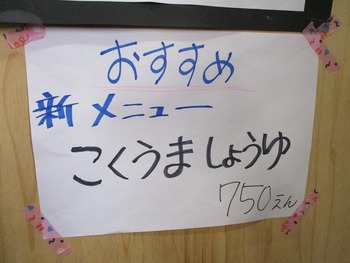 おすすめ
新メニュー
こくうましょうゆ
750えん